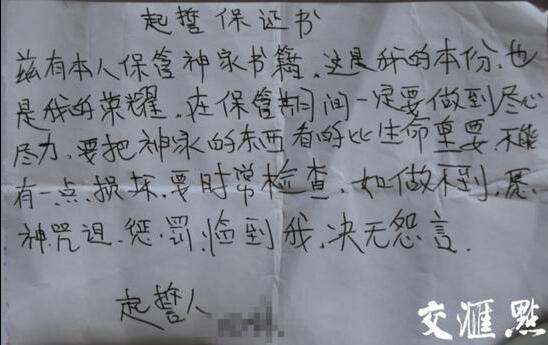 起誓保证书
兹有本人保管神家书籍．这是我的本份．也
是我的荣耀．在保管期间一定要做到尽心
尽力．要把神家的东西看的比生命重要．不能
有一点损坏．要时常检查．如做不到．愿．
神咒诅．惩．罚．临到我．决无怨言．
起誓人
交汇點